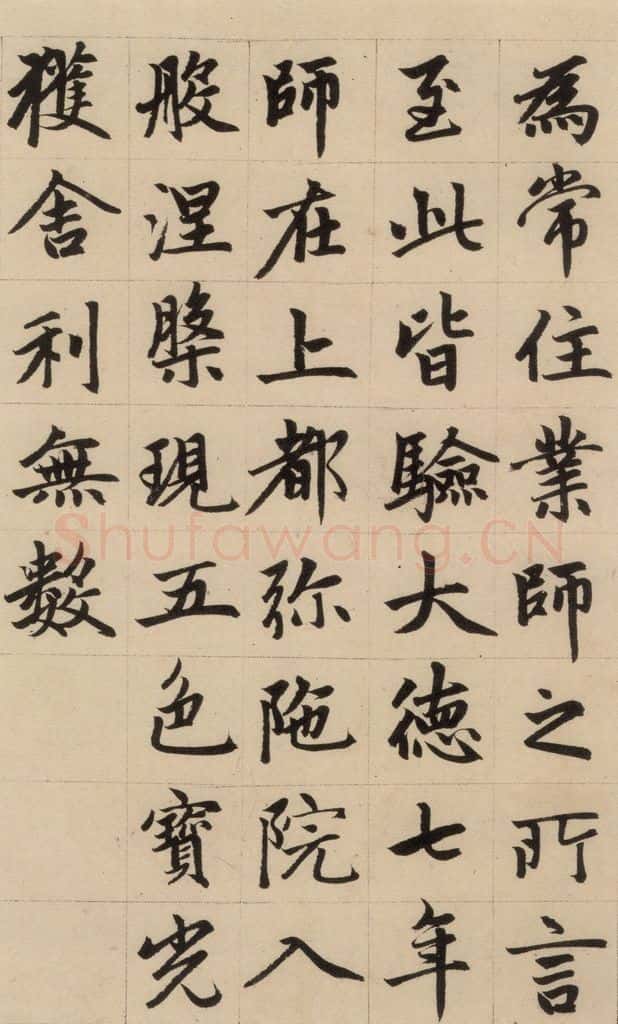 為常住業師之所言
至此皆驗大德七年
師在上都弥陁院入
般涅槃現五色寶光
獲舍利無數
Shufawang.CN